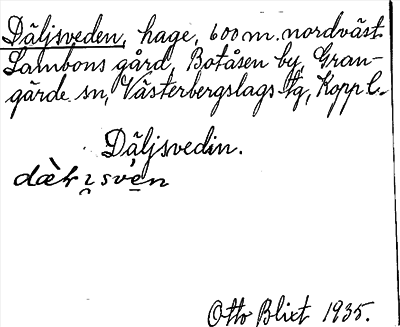 Däljsveden, hage, 600 m. nordväst
Lambons gård, Botåsen by, Gran-
gärde sn, Västerbergslags tg, Kopp l.
Däljsvedin.
Otto Blixt 1935.